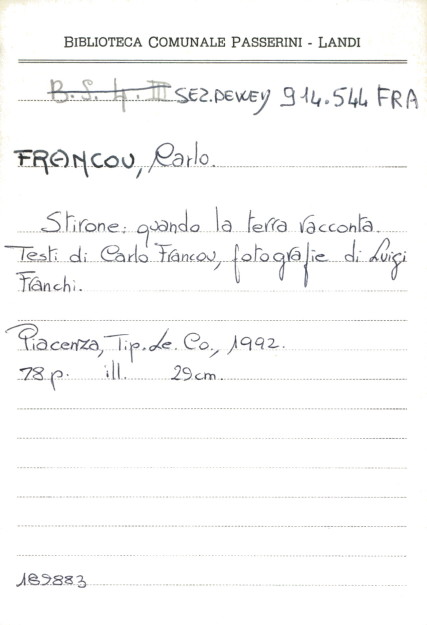 BIBLIOTECA COMUNALE PASSERINI - LANDI
B. S. 4. III SEZ. DEWEY 914.544 FRA
FRANCOU, Carlo.
Stirone: quando la terra racconta.
Testi di Carlo Francou, fotografie di Luigi
Franchi.
Piacenza, Tip. Le. Co., 1992.
78 p. ill. 29 cm.
189883